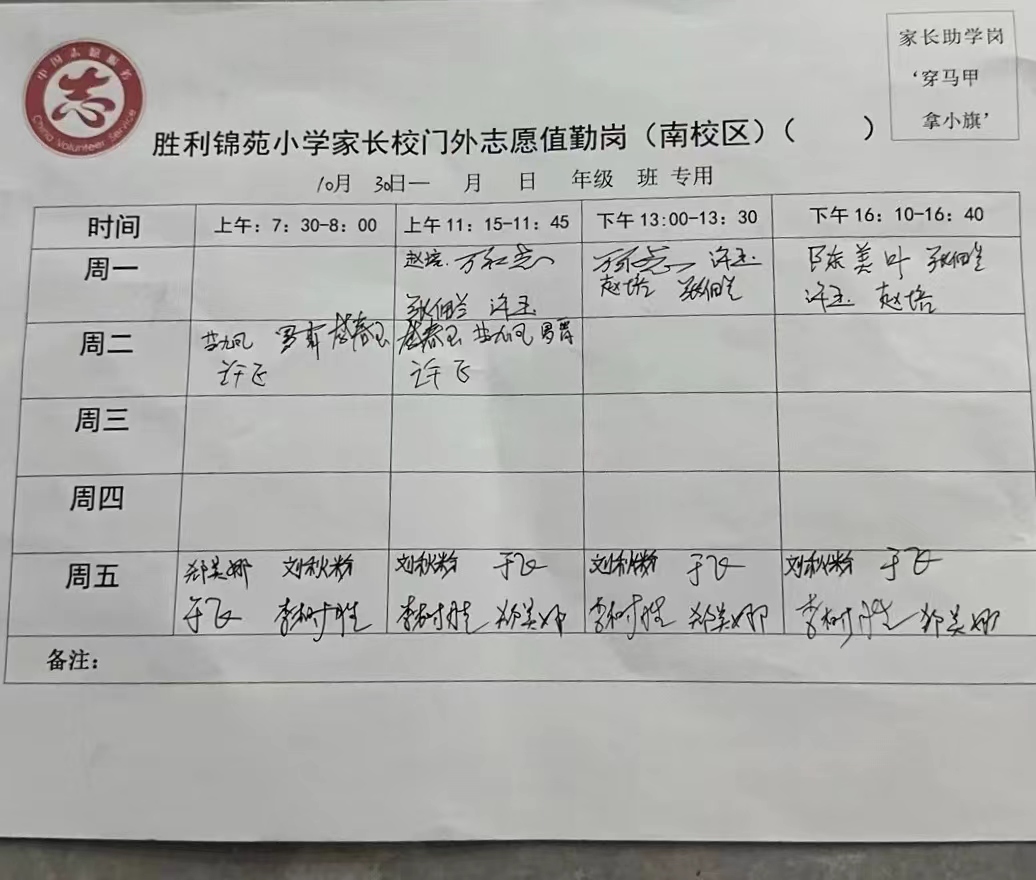 中国志愿服务
志
China Volunteer Service
家长助学岗
‘穿马甲
拿小旗’
胜利锦苑小学家长校门外志愿值勤岗（南校区）（ ）
10月 30日— 月 日 年级 班 专用
时间 上午：7：30-8：00 上午11：15-11：45 下午13:00-13：30 下午16：10-16：40
周一 赵培 许玉 陈美叶
张佃兰 许玉 赵培 张佃兰 许玉 赵培
周二
许飞 许飞
周三
周四
周五 郑美娜 刘秋粉 刘秋粉 于飞 刘秋粉 于飞 刘秋粉 于飞
于飞 李树胜 李树胜 郑美娜 李树胜 郑美娜 李树胜 郑美娜
备注：